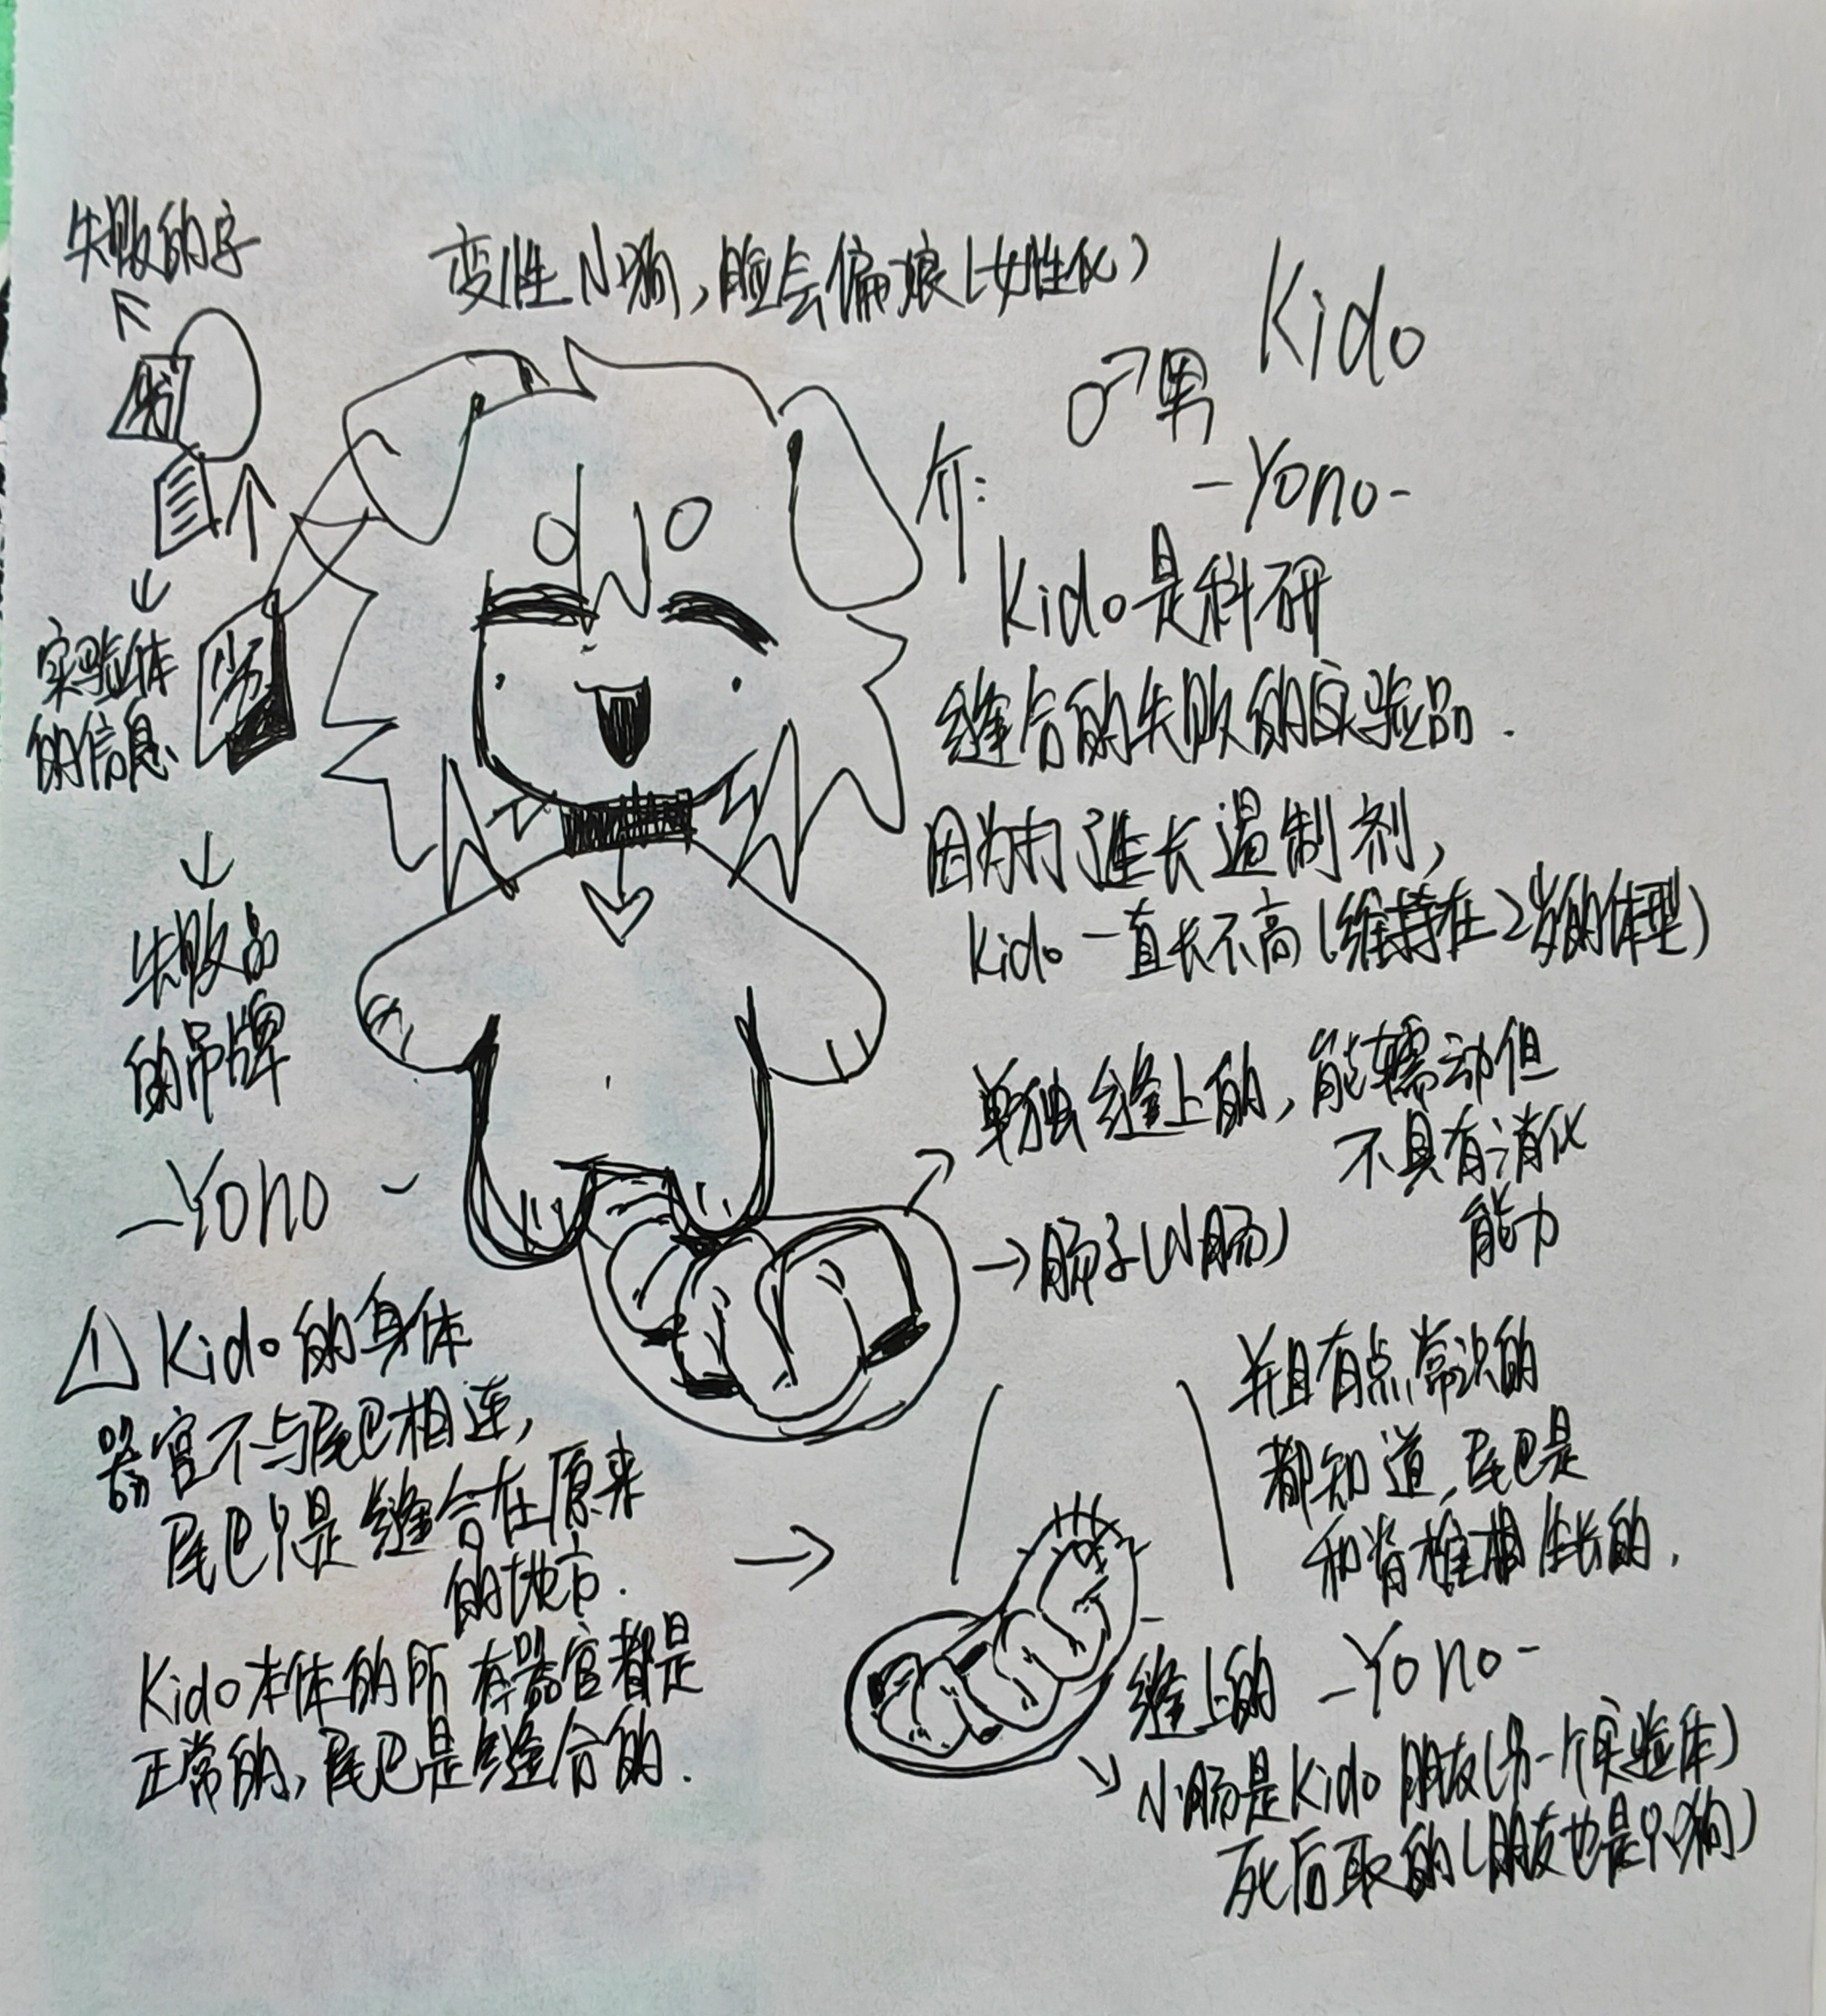 失败的字
变性小狗，脸会偏娘（女性化）
Kido
♂男
-Yono-
介：
Kido是科研
缝合的失败的实验品．
因为打了生长遏制剂，
Kido一直长不高（维持在2岁的体型）
实验体
的信息
失败品
的吊牌
-Yono-
单独缝上的，能蠕动但
不具有消化
能力
→肠子（小肠）
⚠Kido的身体
器官不与尾巴相连，
尾巴只是缝合在原来
的地方．
Kido本体的所有器官都是
正常的，尾巴是缝合的．
并且有点常识的
都知道，尾巴是
和脊椎相生长的．
缝上的 -Yono-
小肠是Kido朋友（另一个实验体）
死后取的（朋友也是只狗）